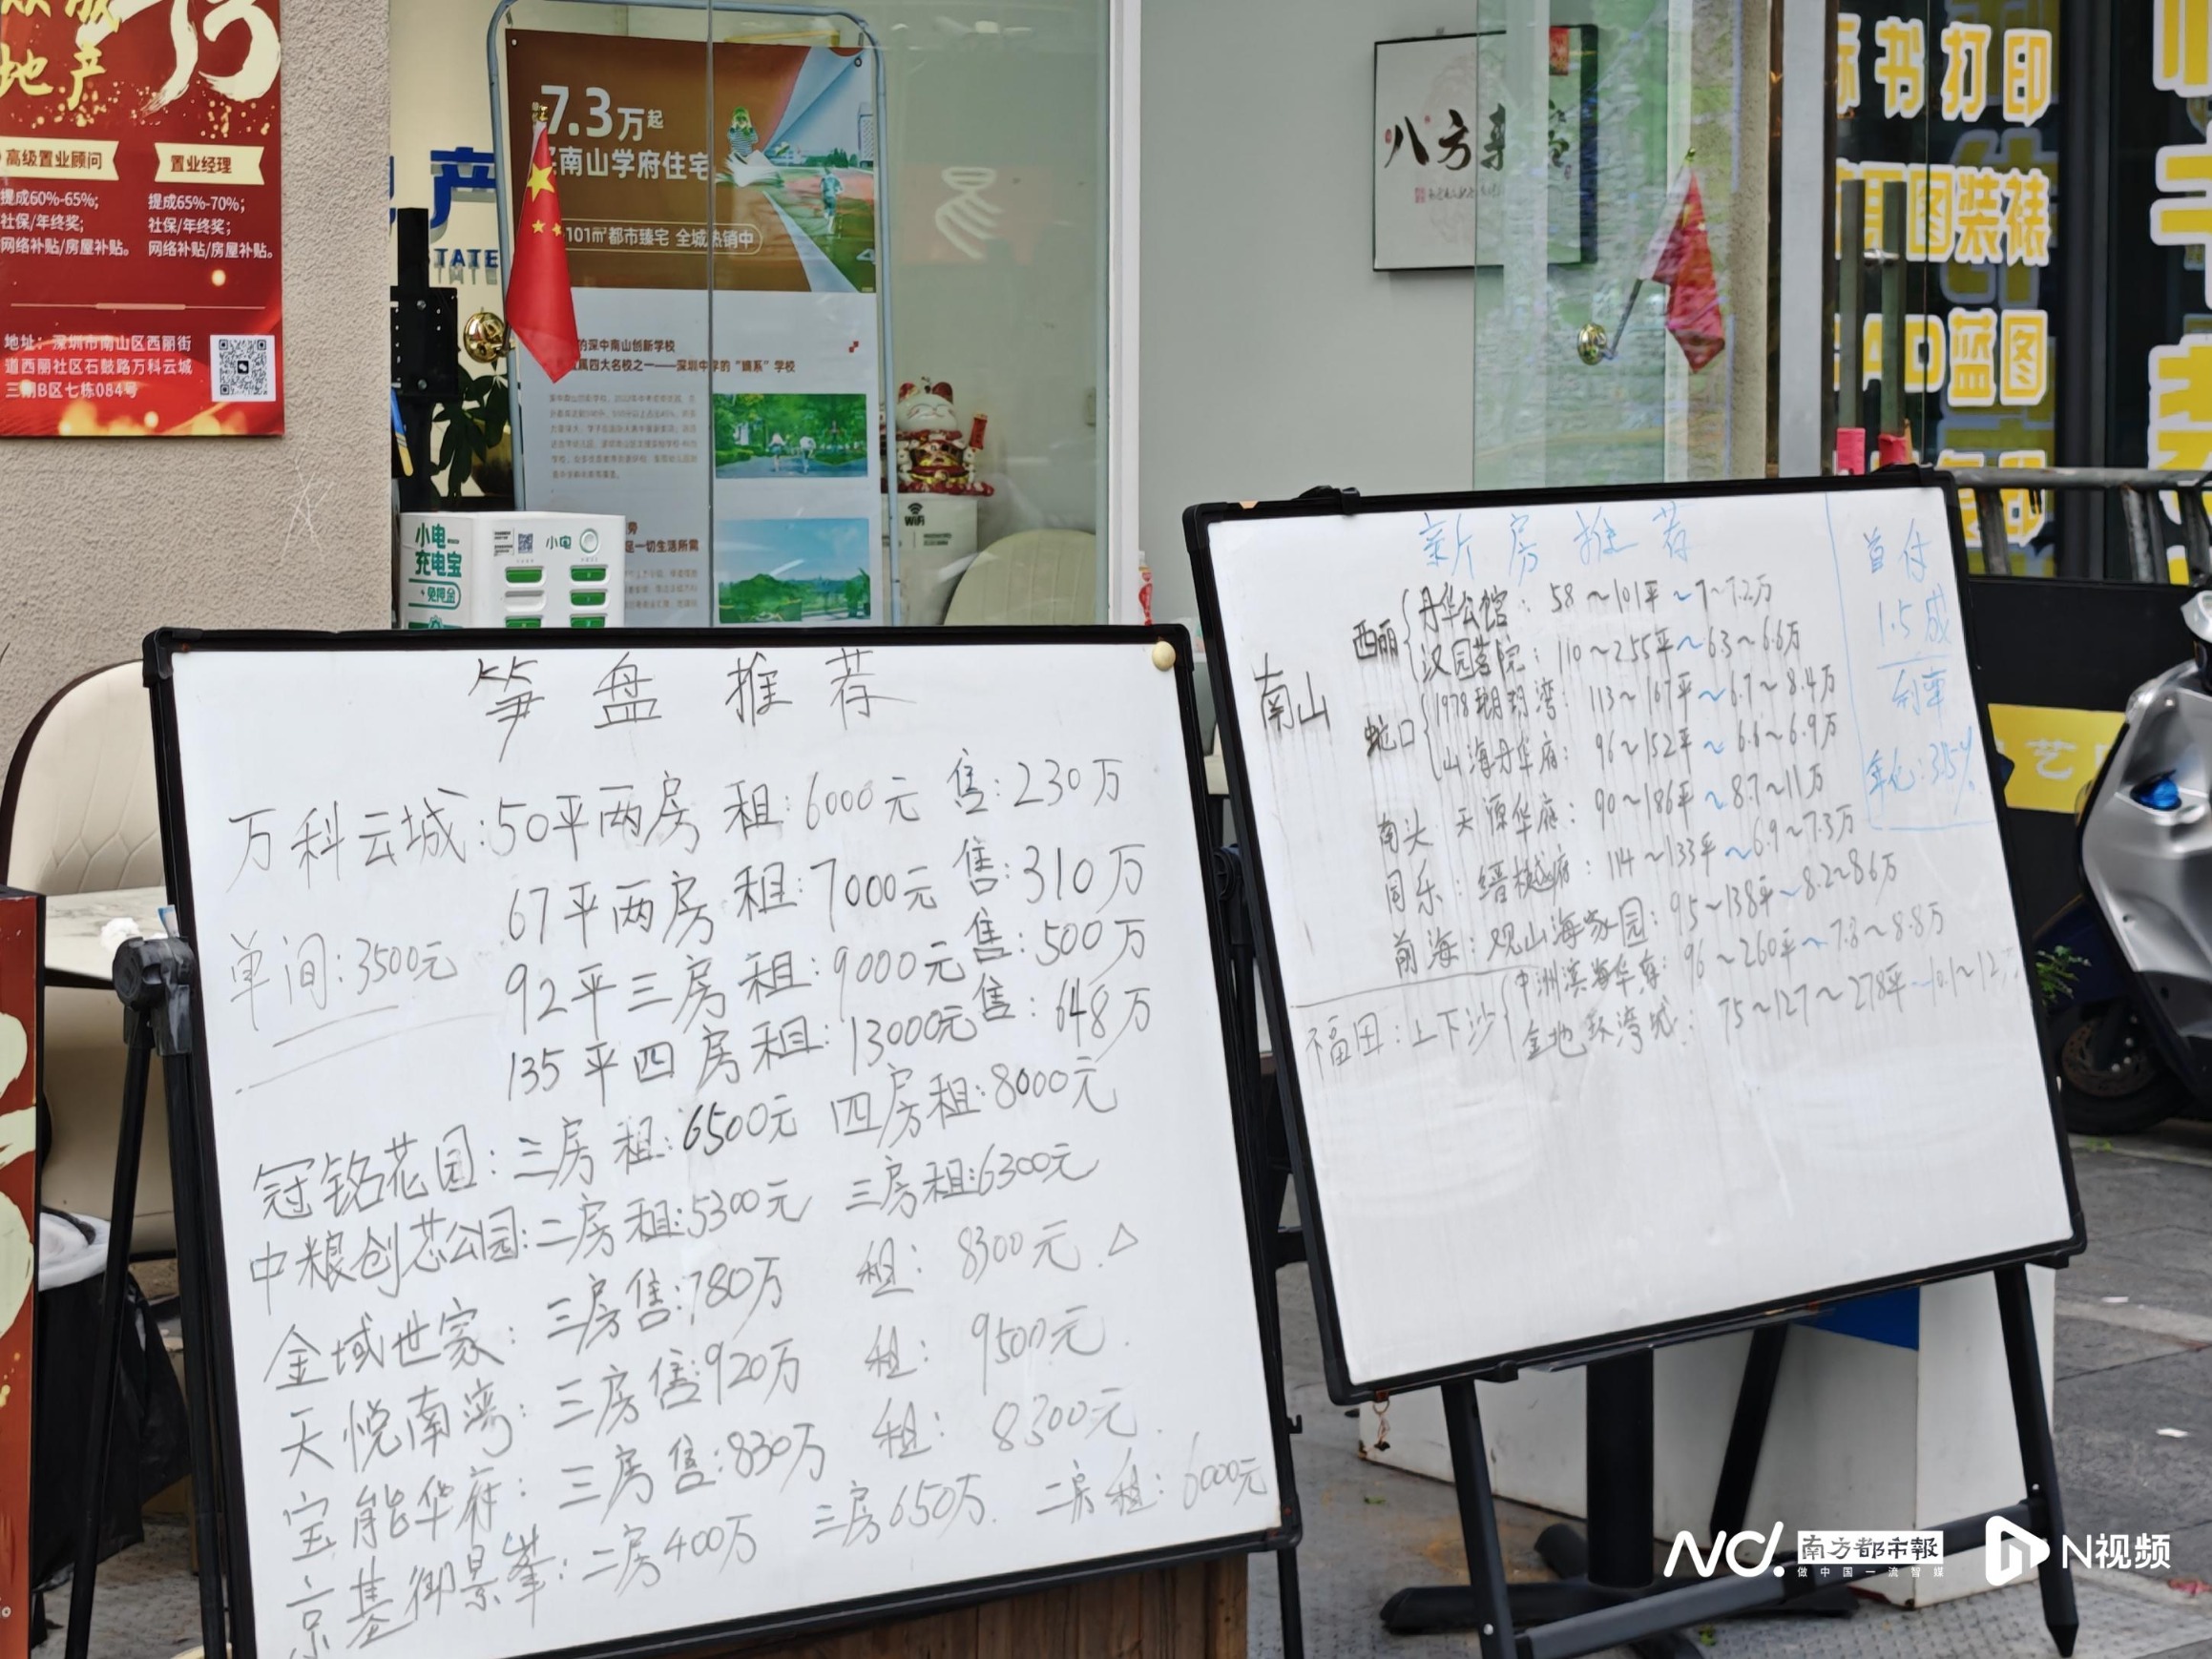 地产
高级置业顾问
提成60%-65%;
社保/年终奖;
网络补贴/房屋补贴。
置业经理
提成65%-70%;
社保/年终奖;
网络补贴/房屋补贴。
地址：深圳市南山区西丽街
道西丽社区石鼓路万科云城
三期B区七栋084号
产
STATE
7.3万起
南山学府住宅
101㎡都市臻宅 全城热销中
的深中南山创新学校
属四大名校之一——深圳中学的“嫡系”学校
一切生活所需
小电
充电宝
免押金
小电
WiFi
易
八方来
书打印
图装裱
AD蓝图
印
笋盘推荐
万科云城:50平两房 租:6000元 售:230万
67平两房 租:7000元 售:310万
单间:3500元
92平三房 租:9000元 售:500万
135平四房 租:13000元 售:648万
冠铭花园:三房 租:6500元 四房租:8000元
中粮创芯公园:二房租:5300元 三房租:6300元
金域世家:三房售:780万 租:8300元 △
天悦南湾:三房售:920万 租:9500元
宝能华府:三房售:830万 租:8300元
京基御景峯:二房400万 三房650万 二房租:6000元
新房推荐
南山
西丽
丹华公馆:58~101平~7~7.2万
汉园茗院:110~255平~6.3~6.6万
蛇口
1978瑚玥湾:113~167平~6.7~8.4万
山海丹华府:96~152平~6.6~6.9万
南头 天源华庭:90~186平~8.7~11万
同乐:缙樾府:114~133平~6.9~7.3万
前海:观山海家园:95~138平~8.2~8.6万
福田:上下沙
中洲滨海华府:96~260平~7.8~8.8万
金地环湾城:75~127~278平~10.1~12万
首付
1.5成
利率
年化:3.5%
艺
南方都市報
做中国一流智媒
N视频